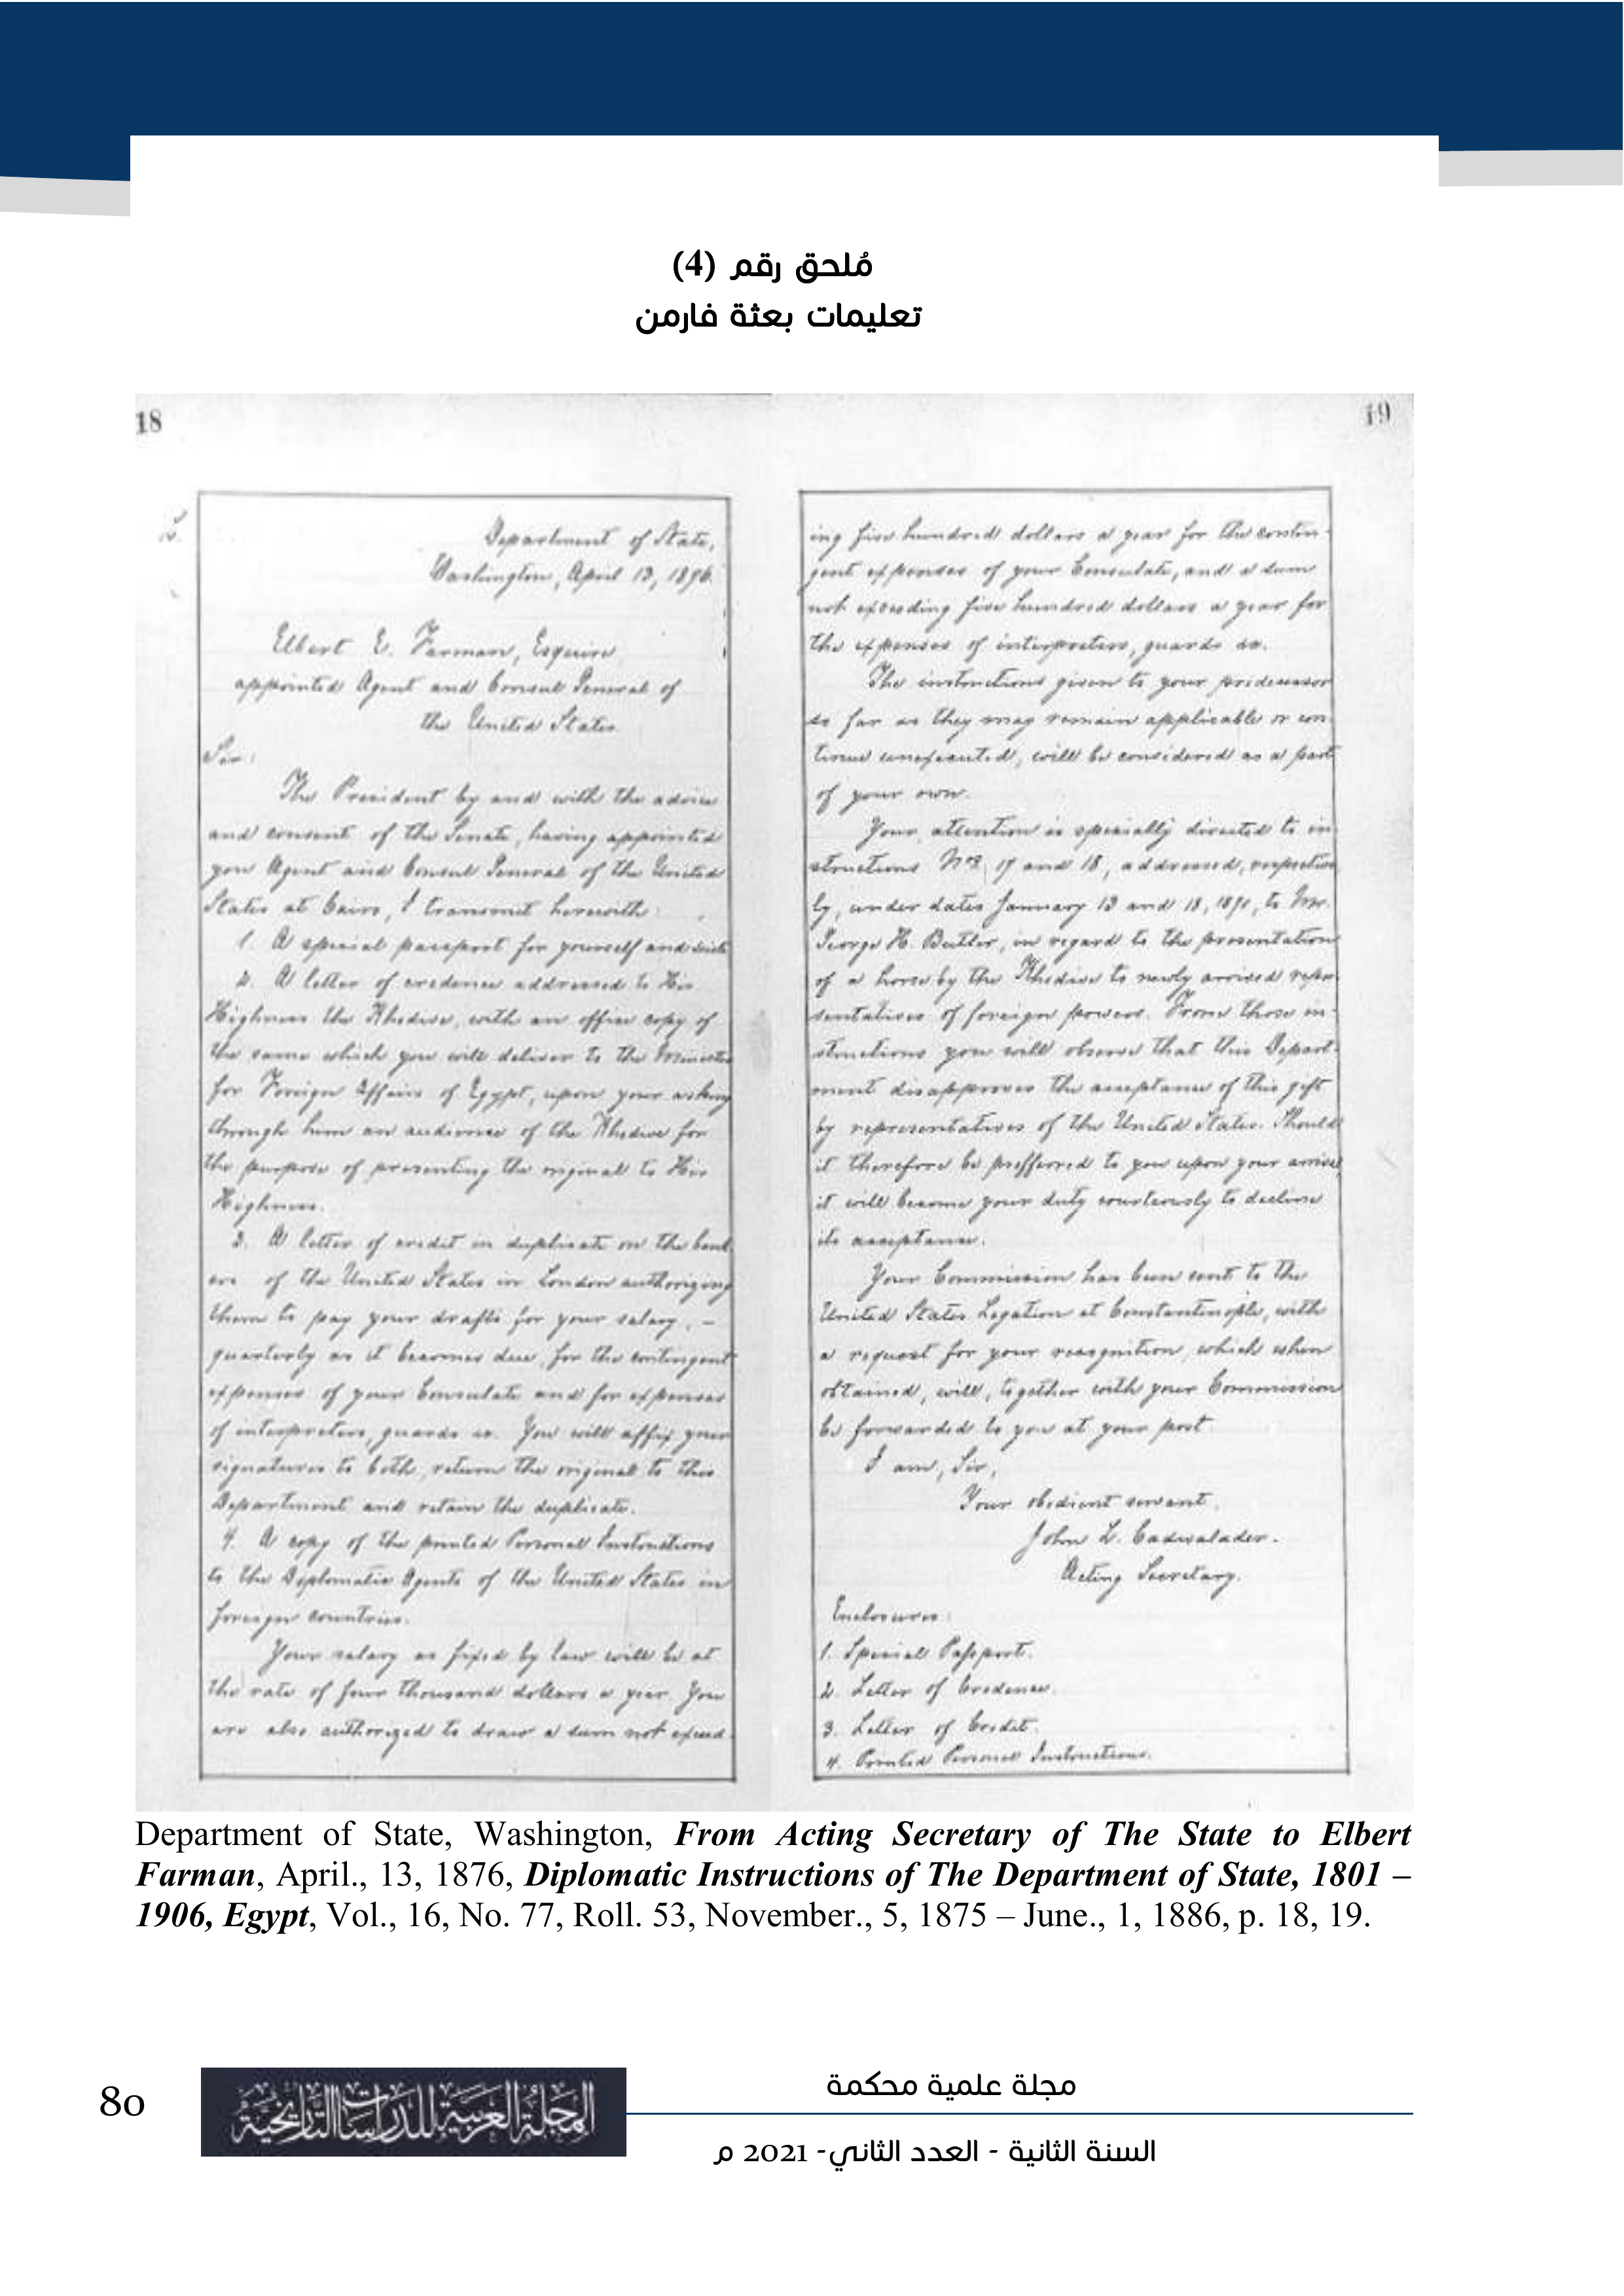 مُلحق رقم (4)
تعليمات بعثة فارمن
18
Department of State,
Washington, April 13, 1876.
Elbert E. Farman, Esquire
appointed Agent and Consul General of
the United States
Sir:
The President by and with the advice
and consent of the Senate, having appointed
you Agent and Consul General of the United
States at Cairo, I transmit herewith:
1. A special passport for yourself and suite
2. A letter of credence addressed to His
Highness the Khedive, with an office copy of
the same which you will deliver to the Minister
for Foreign Affairs of Egypt, upon your asking
through him an audience of the Khedive for
the purpose of presenting the original to His
Highness.
3. A letter of credit in duplicate on the bank
ers of the United States in London authorizing
them to pay your drafts for your salary, -
quarterly as it becomes due, for the contingent
expenses of your Consulate and for expenses
of interpreters, guards &c. You will affix your
signatures to both, return the original to this
Department and retain the duplicate.
4. A copy of the printed Personal Instructions
to the Diplomatic Agents of the United States in
foreign countries.
Your salary as fixed by law will be at
the rate of four thousand dollars a year. You
are also authorized to draw a sum not exceed
19
ing five hundred dollars a year for the contin-
gent expenses of your Consulate, and a sum
not exceeding five hundred dollars a year for
the expenses of interpreters, guards &c.
The instructions given to your predecessor
so far as they may remain applicable or con-
tinue unexecuted, will be considered as a part
of your own.
Your attention is specially directed to in-
structions Nos. 17 and 18, addressed, respective
ly, under dates January 13 and 18, 1871, to Mr.
George H. Butler, in regard to the presentation
of a horse by the Khedive to newly arrived repre-
sentatives of foreign powers. From those in-
structions you will observe that this Depart-
ment disapproves the acceptance of this gift
by representatives of the United States. Should
it therefore be profferred to you upon your arrival
it will become your duty courteously to decline
its acceptance.
Your Commission has been sent to the
United States Legation at Constantinople, with
a request for your recognition, which when
obtained, will, together with your Commission
be forwarded to you at your post.
I am, Sir,
Your obedient servant.
John L. Cadwalader.
Acting Secretary.
Enclosures:
1. Special Passport.
2. Letter of Credence.
3. Letter of Credit.
4. Printed Personal Instructions.
Department of State, Washington, From Acting Secretary of The State to Elbert
Farman, April., 13, 1876, Diplomatic Instructions of The Department of State, 1801 –
1906, Egypt, Vol., 16, No. 77, Roll. 53, November., 5, 1875 – June., 1, 1886, p. 18, 19.
مجلة علمية محكمة
80
المجلة العربية للدراسات التاريخية
السنة الثانية - العدد الثاني- 2021 م